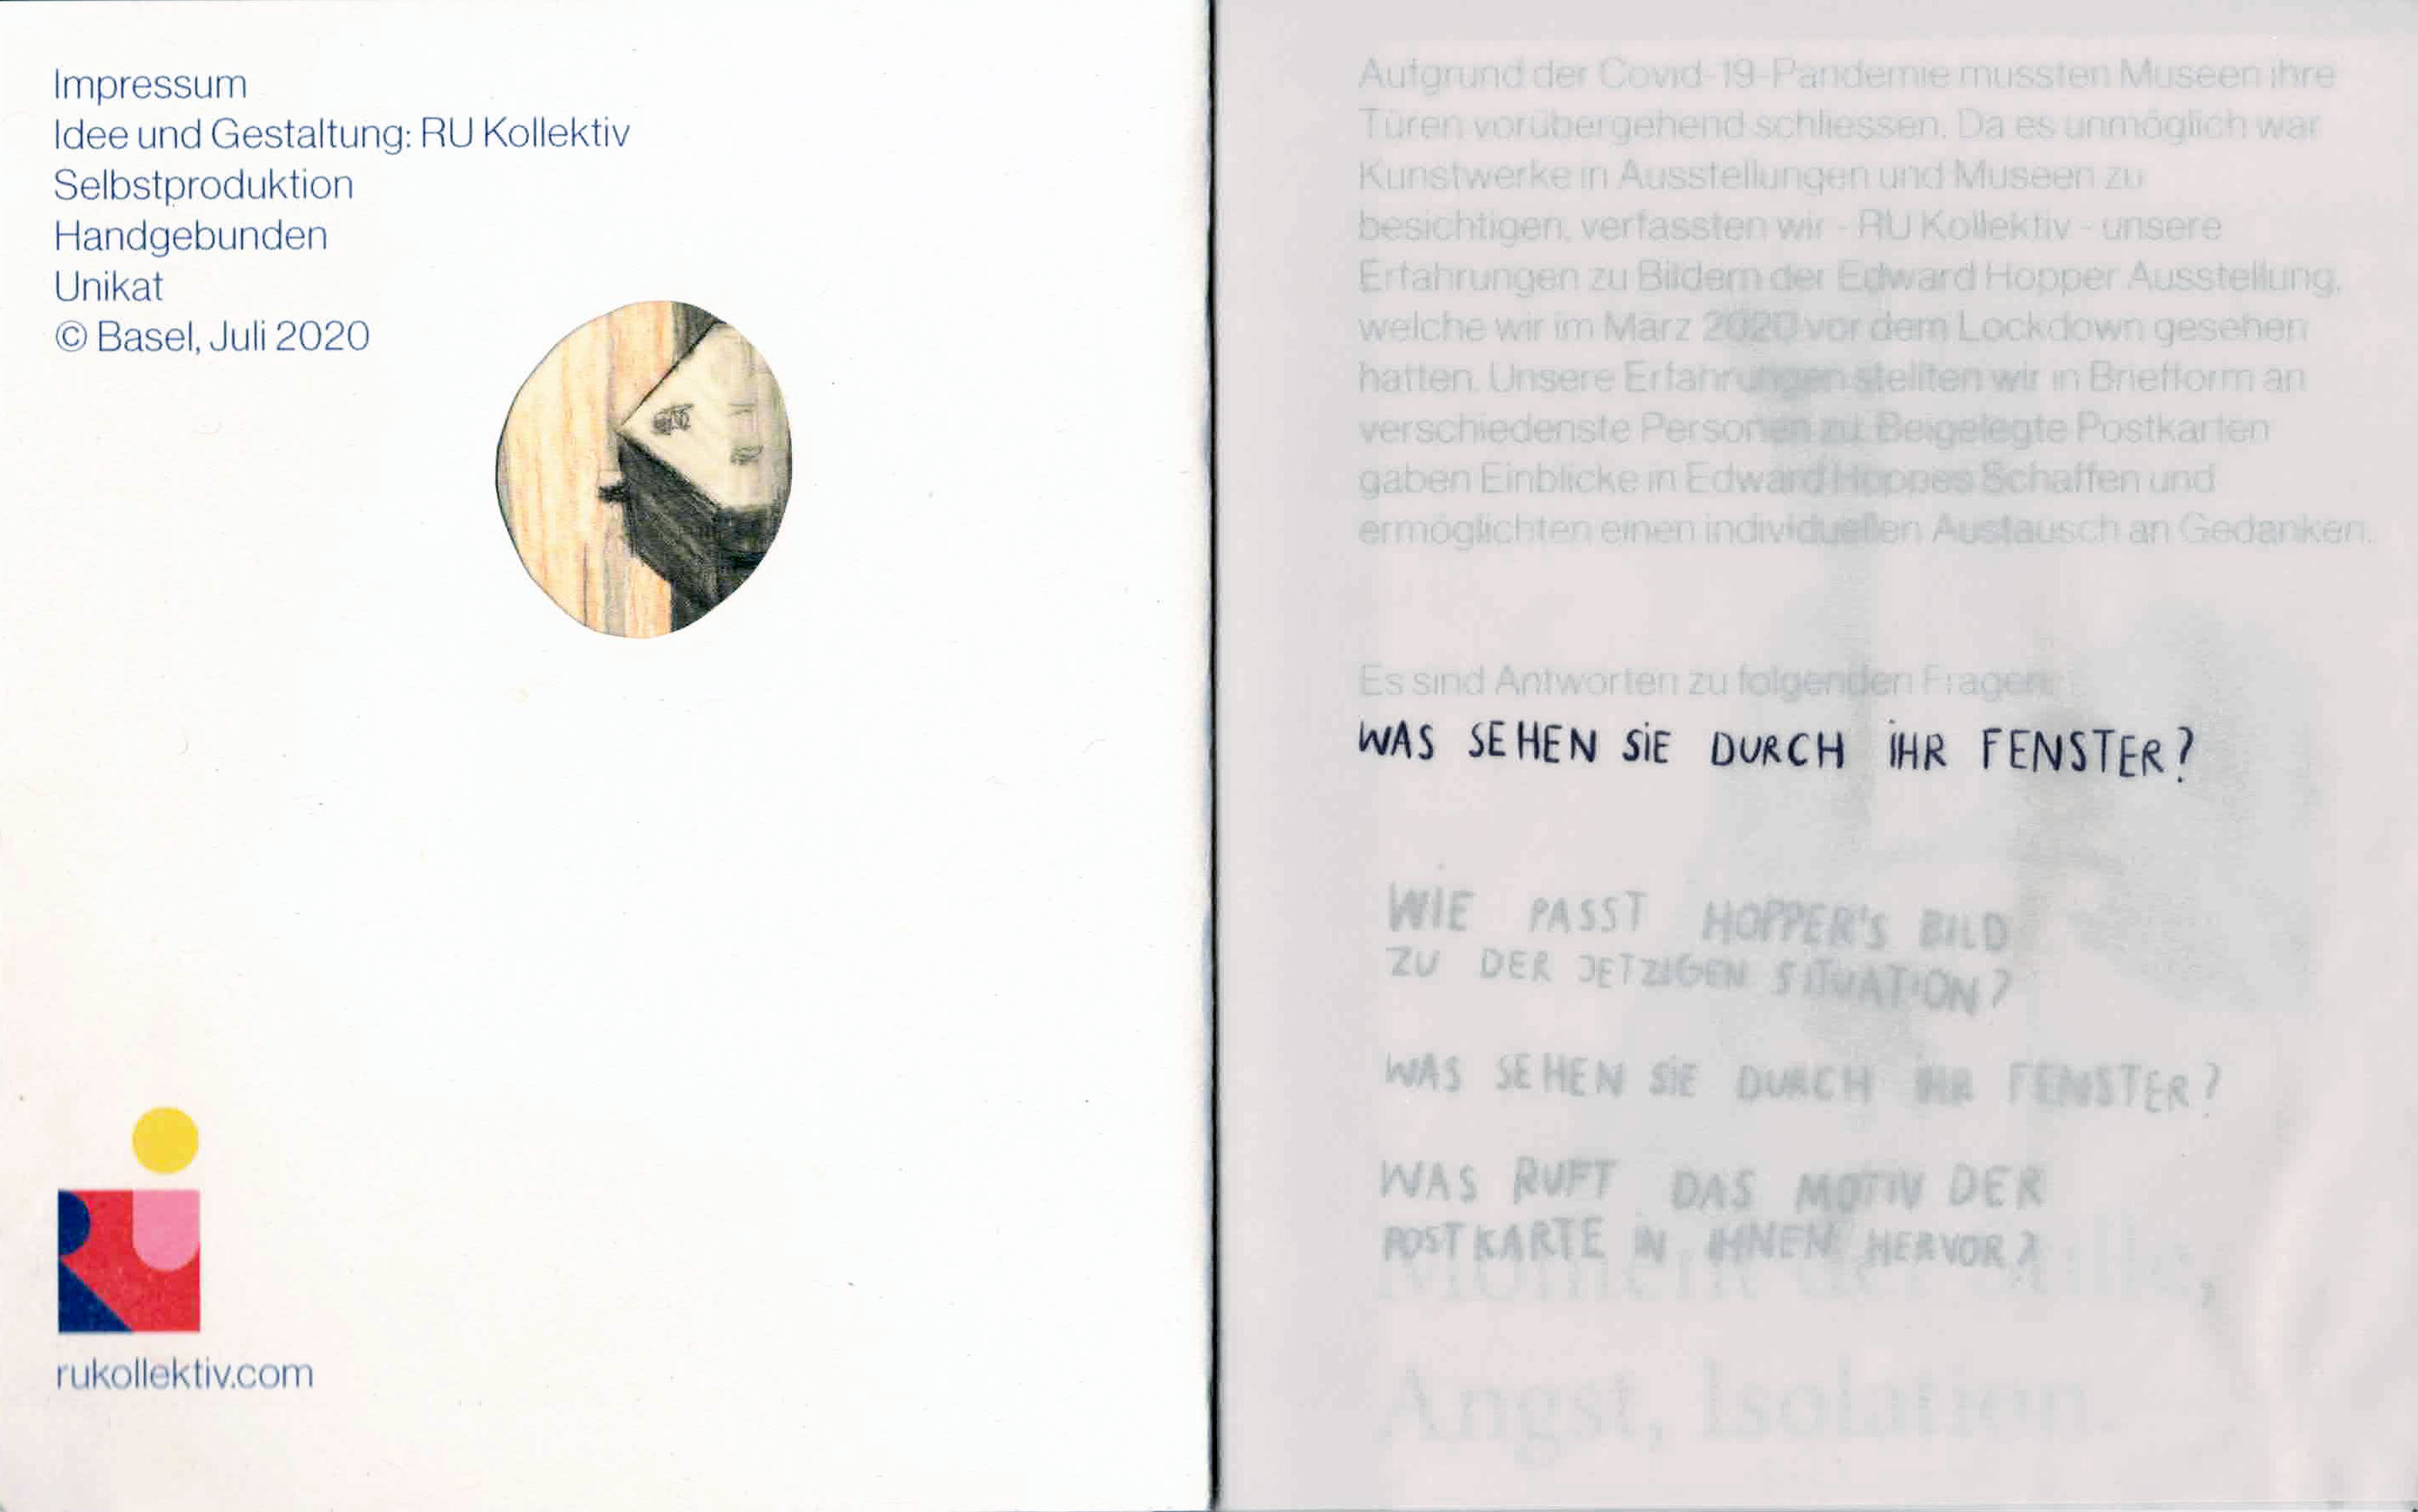 Impressum
Idee und Gestaltung: RU Kollektiv
Selbstproduktion
Handgebunden
Unikat
© Basel, Juli 2020
rukollektiv.com
Aufgrund der Covid-19-Pandemie mussten Museen ihre
Türen vorübergehend schliessen. Da es unmöglich war
Kunstwerke in Ausstellungen und Museen zu
besichtigen, verfassten wir - RU Kollektiv - unsere
Erfahrungen zu Bildern der Edward Hopper Ausstellung,
welche wir im März 2020 vor dem Lockdown gesehen
hatten. Unsere Erfahrungen stellten wir in Briefform an
verschiedenste Personen zu. Beigelegte Postkarten
gaben Einblicke in Edward Hoppes Schaffen und
ermöglichten einen individuellen Austausch an Gedanken.
Es sind Antworten zu folgenden Fragen:
WAS SEHEN SiE DURCH iHR FENSTER?
WIE PASST HOPPER'S BILD
ZU DER JETZIGEN SITUATION?
WAS SEHEN SiE DURCH iHR FENSTER?
WAS RUFT DAS MOTIV DER
POSTKARTE IN IHNEN HERVOR?
Moment der Stille,
Angst, Isolation.